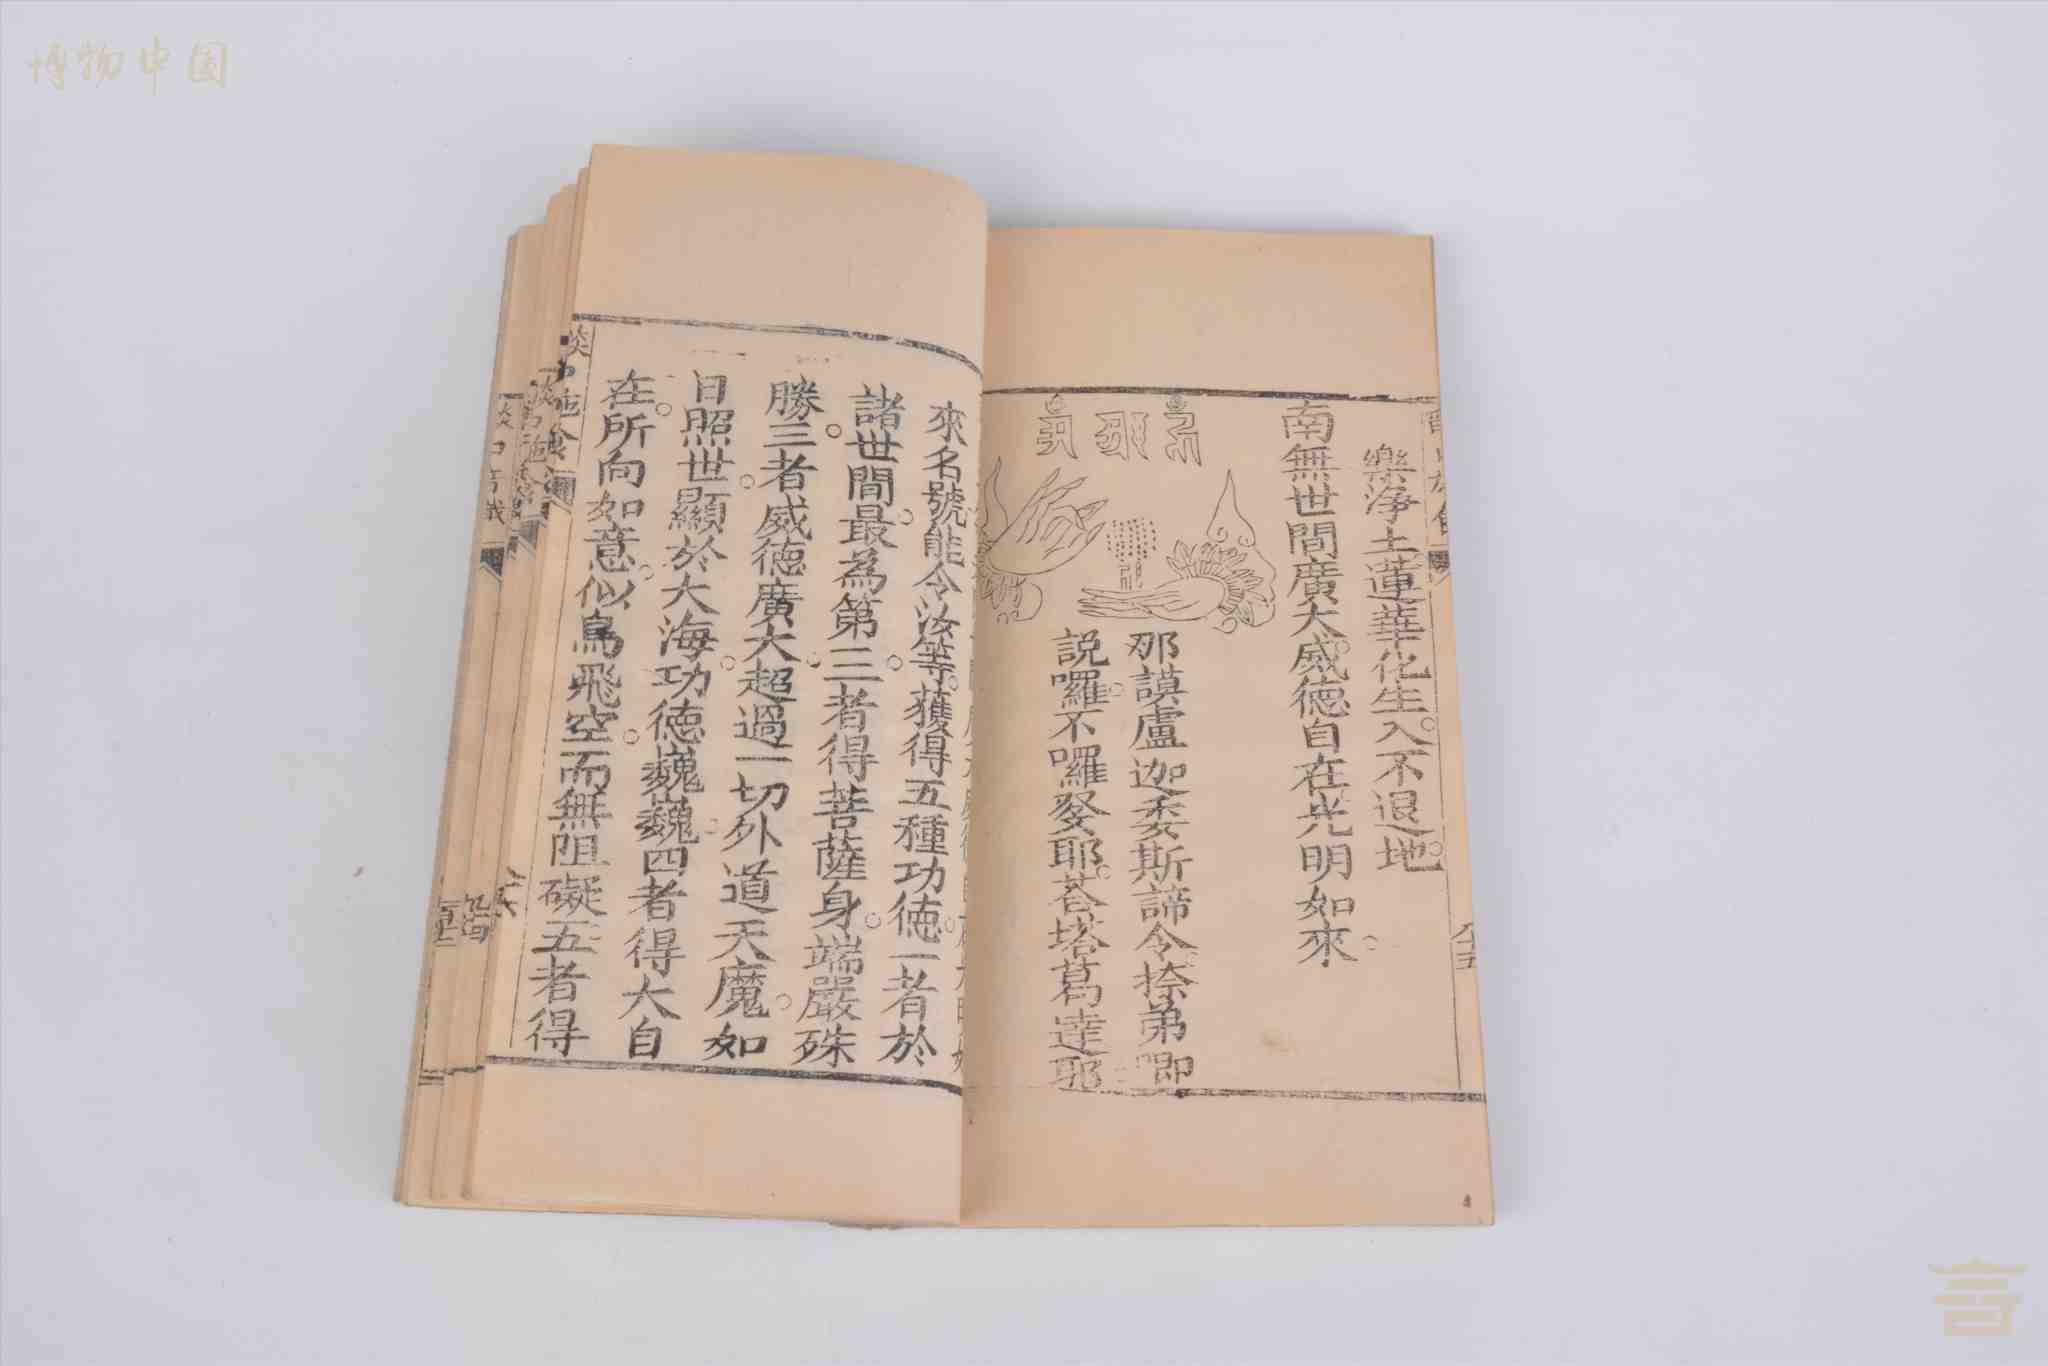 博物中国
樂淨土蓮華化生入不退地
南無世間廣大威德自在光明如來
那謨盧迦委斯諦令捺弟唧
說囉不囉癹耶荅塔葛達耶
來名號能令汝等獲得五種功德一者於
諸世間最為第一三者得菩薩身端嚴殊
勝三者威德廣大超過一切外道天魔如
日照世顯於大海功德巍巍四者得大自
在所向如意似鳥飛空而無阻礙五者得